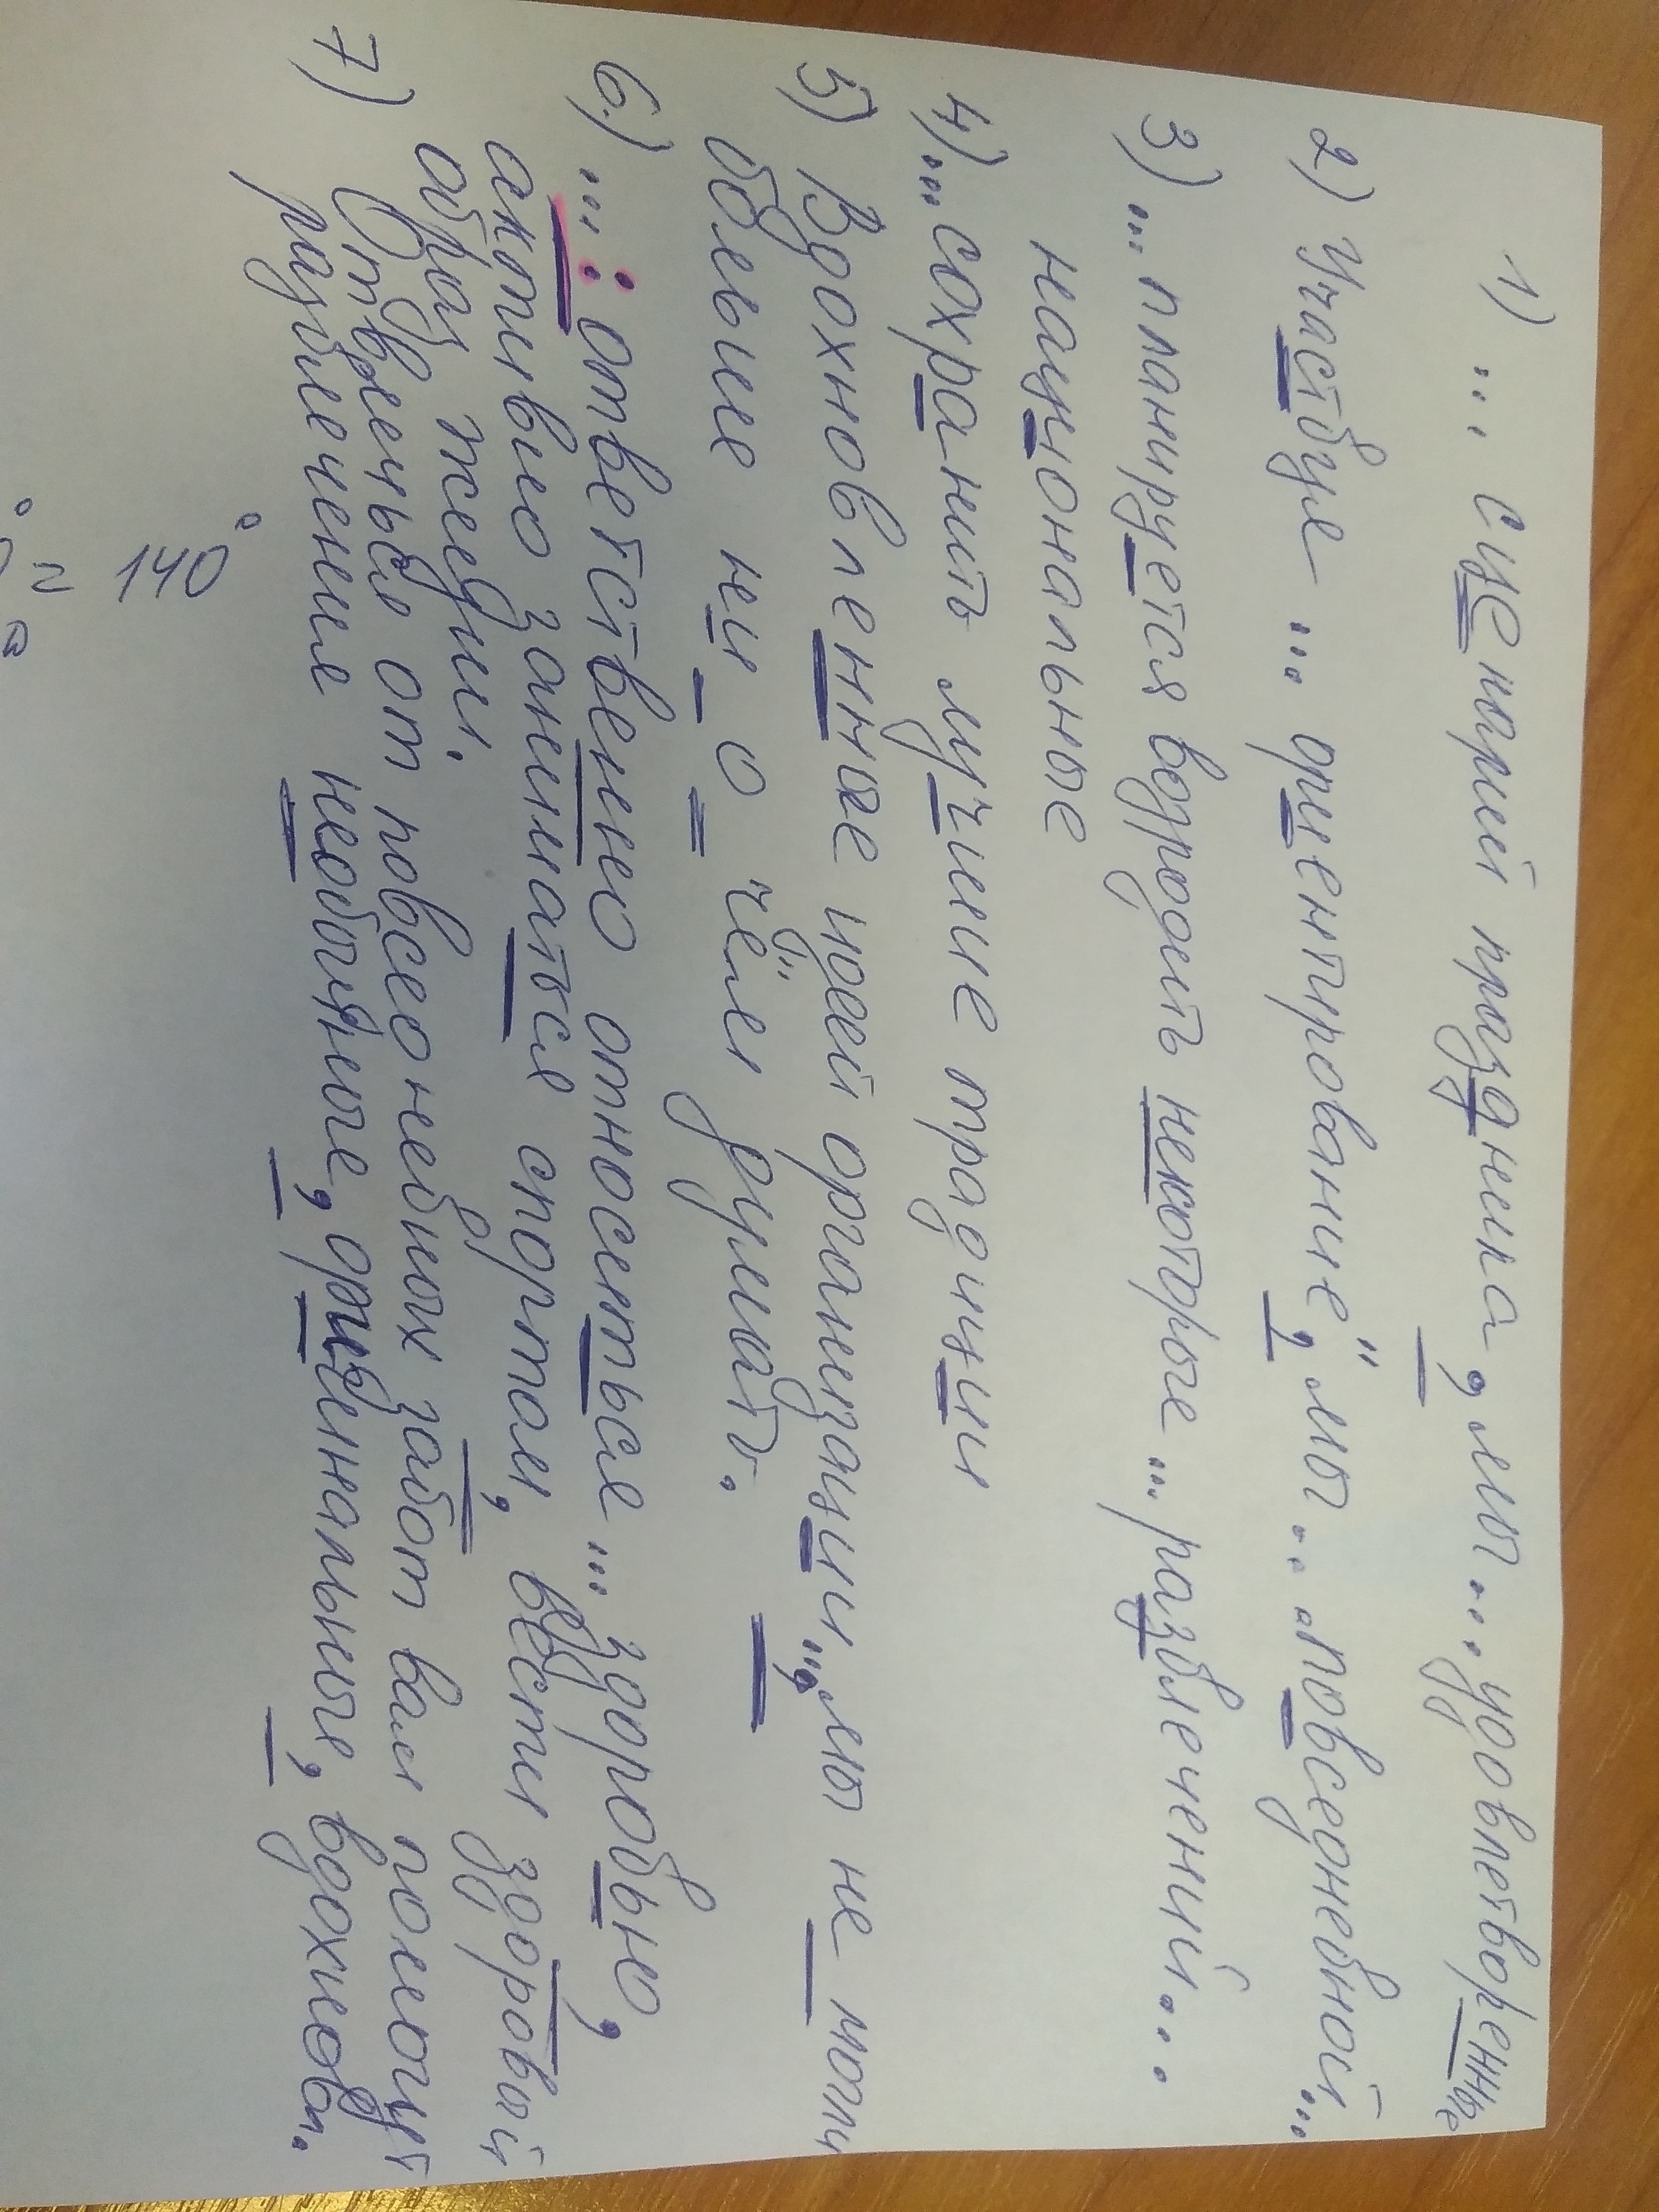 1) ... сценарий праздника, мы ... удовлетворённые
2) Участвуя ... ориентирование", мы ... повседневной...
3) ...планируется возродить некоторые ... развлечений...
национальные
4) ...сохранить лучшие традиции
5) Вдохновленные идеей организации..., мы не могли
больше ни о чём думать.
6.) ... : ответственно относиться ... здоровью,
активно заниматься спортом, вести здоровый
образ жизни.
7) Отвлечься от повседневных забот вам помогут
развлечения необычные, оригинальные, вдохнов.
140